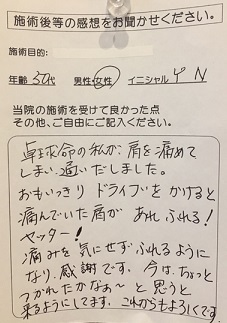 施術後等の感想をお聞かせください。
施術目的:
年齢 30代 男性・女性 イニシャル Y N
当院の施術を受けて良かった点
その他、ご自由にご記入ください。
卓球命の私が、肩を痛めて
しまい、通いだしました。
おもいっきり ドライブをかけると
痛んでいた肩が あれ ふれる!
ヤッター!
痛みを気にせず ふれるように
なり、感謝です。今は、ちょっと
つかれたかなぁ~ と思うと
来るようにしてます。これからもよろしくです。